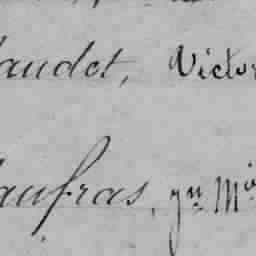 audet, Victor
aufras, yn Mi